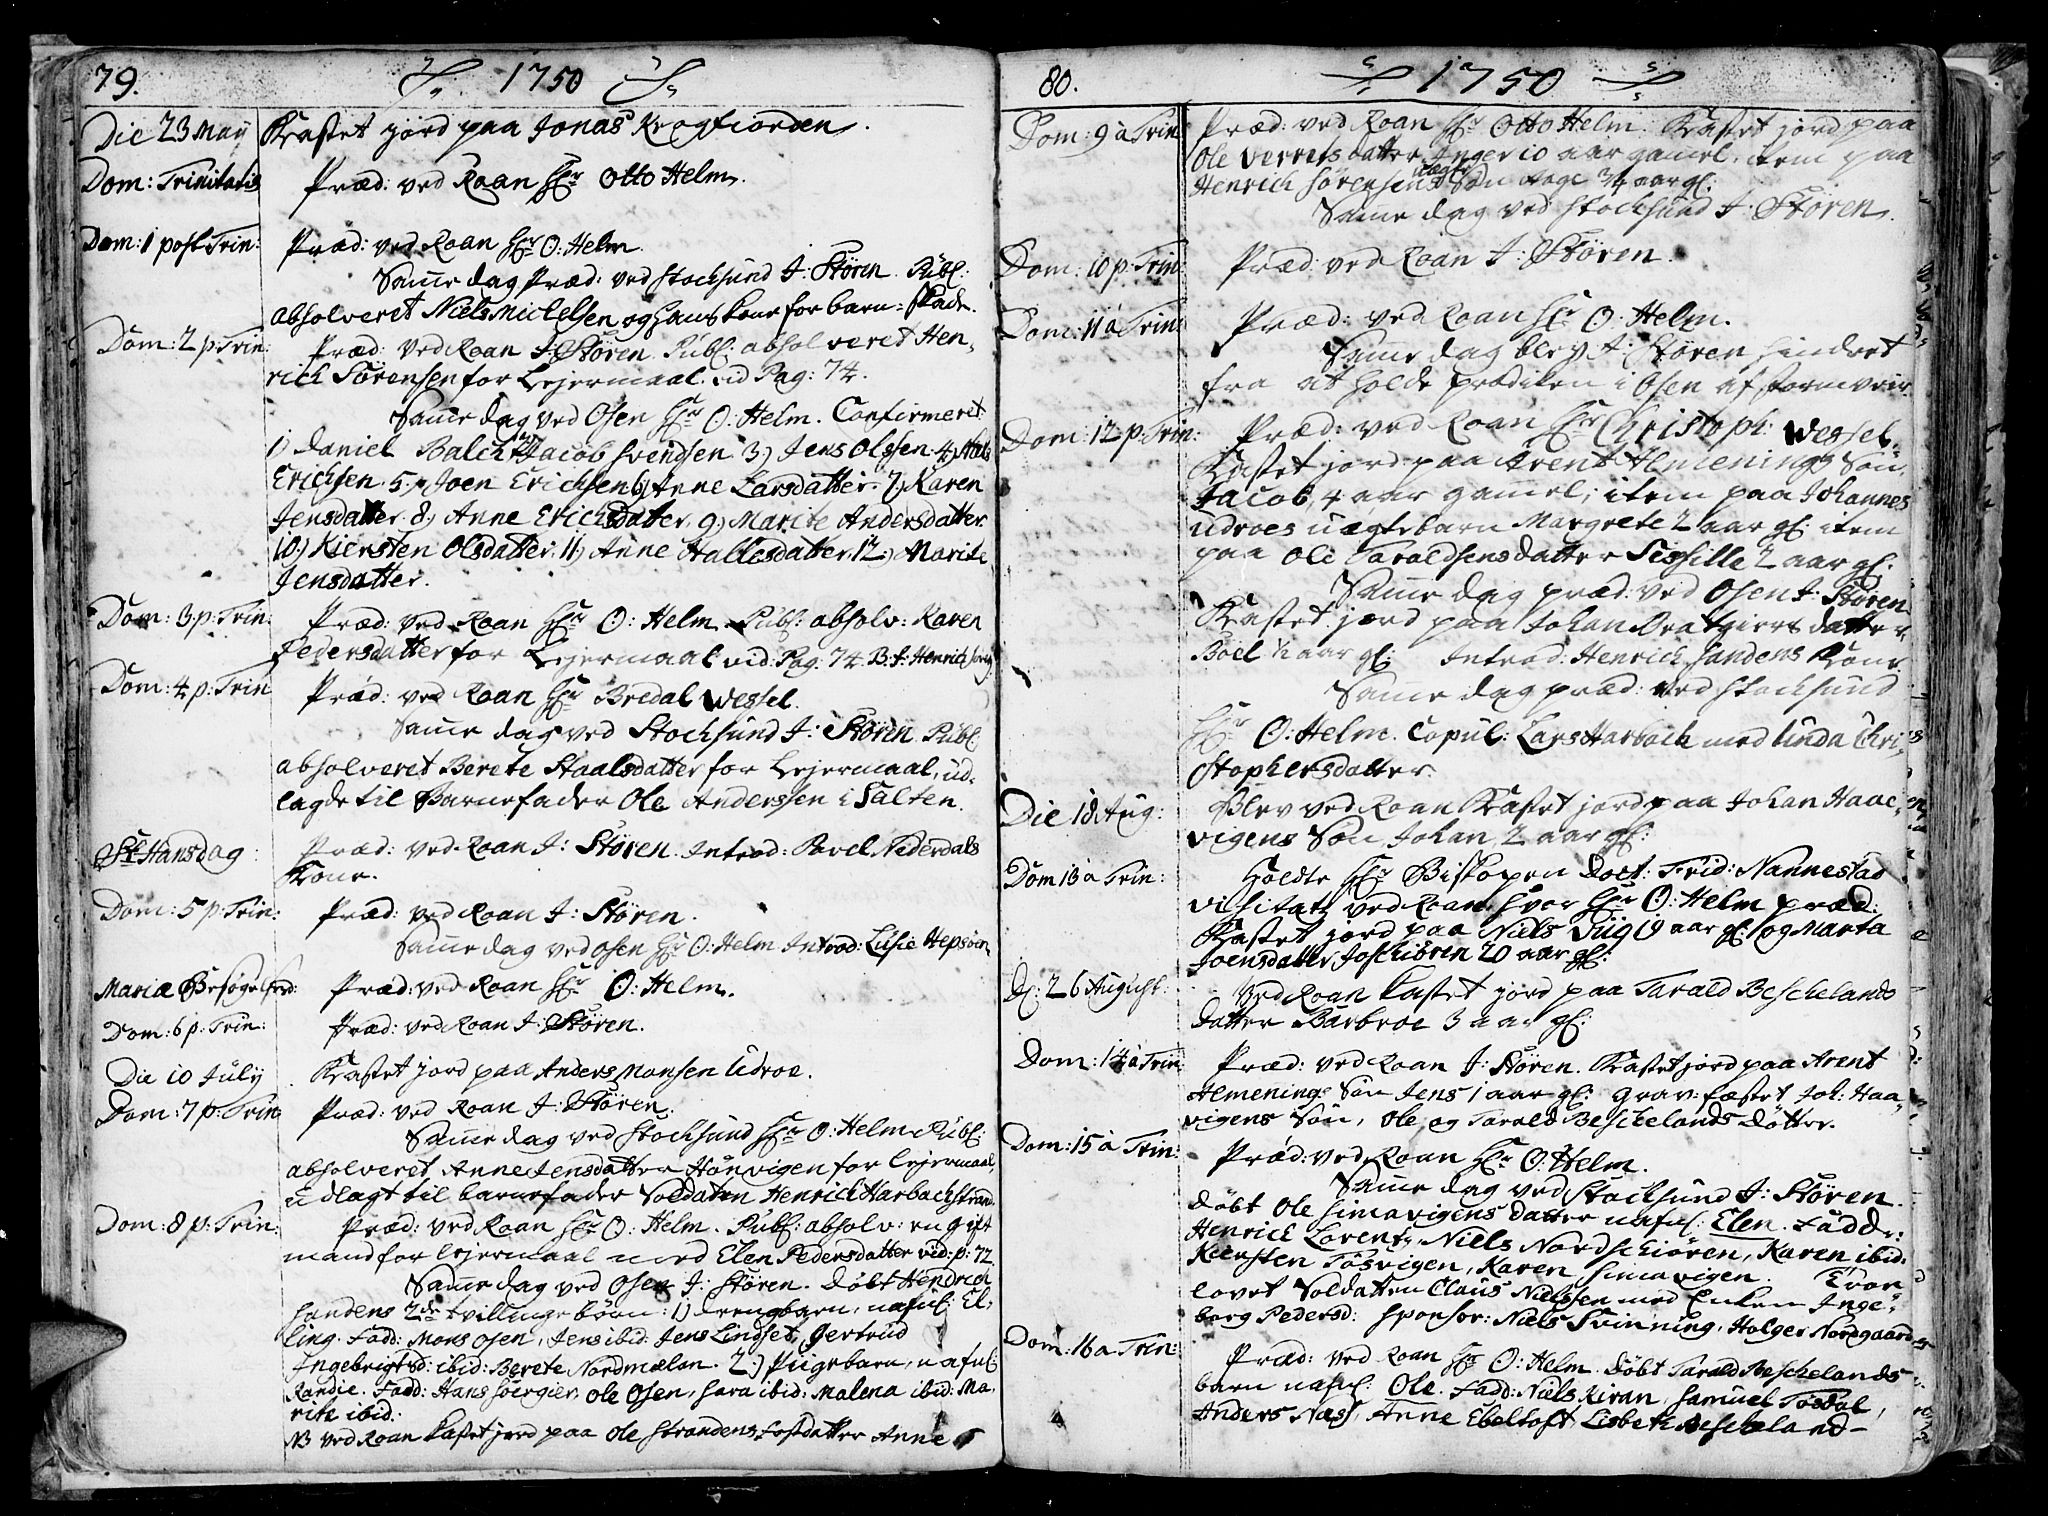 79. 1750
Die 23 Maij Kastet jord paa Jonas Krogfiorden.
Dom: Trinitatis Præd: ved Roan Hr Otto Helm.
Dom: 1 post Trin: Præd: ved Roan Hr O: Helm.
Samme dag Præd: ved Stocksund J: Stören. Publ:
absolveret Niels Michelsen og hans kone for barn: skade.
Dom: 2 p: Trin: Præd: ved Roan J: Stören. Publ: absolveret Hen,
rich Sörensen for Lejermaal. vid Pag: 74.
Samme dag ved Osen Hr O: Helm. Confirmeret
1) Daniel Balch 2) Jacob Svendsen 3.) Jens Olssen 4.)
Erichsen. 5.) Joen Erichsen 6.) Anne Larsdatter. 7.) Karen
Jensdatter. 8.) Anne Erichsdatter. 9.) Marite Andersdatter
10.) Kiersten Olsdatter. 11.) Anne Hallesdatter. 12.) Marite
Jensdatter.
Dom: 3 p: Trin: Præd: ved Roan Hr O: Helm. Publ: absolv: Karen
Pedersdatter for Lejermaal vid: Pag: 74. B.f: Henrich
Dom: 4 p: Trin Præd: ved Roan Hr Bredal Wessel.
Samme dag ved Stocksund J: Stören. Publ:
absolveret Berete Staalsdatter for Lejermaal, ud,
lagde til Barnefader Ole Anderssen i Salten.
St Hansdag: Præd: ved Roan J: Stören. Introd: Povel Nederdals
Kone.
Dom: 5 p: Trin: Præd: ved Roan J: Stören.
Samme dag ved Osen Hr O: Helm Introd: Lusie Hepsöen.
Mariæ Besögelses: Præd: ved Roan Hr O: Helm.
Dom: 6 p: Trin: Præd: ved Roan J: Stören.
Die 10 July Kastet jord paa Anders Monsen Udroe.
Dom: 7 p: Trin Præd: ved Roan J: Stören.
Samme dag ved Stocksund Hr O: Helm Publ:
absolveret Anne Jensdatter Hönvigen for lejermaal,
udlagt til barnefader Soldaten Henrich Harbachstrand
Dom: 8 p: Trin: Præd: ved Roan Hr O: Helm. Publ: absolv: en gift
mand for lejermaal med Elen Pedersdatter vid: p: 72.
Samme dag ved Osen J: Stören. Döbt Hendrich
Sandens 2de tvillinge börn: 1) drengbarn, nafnl: El,
ling. Fadd: Mons Osen, Jens ibid: Jens Lindset, Gertrud
Ingebrigtsd: ibid: Berete Nordmælan. 2.) Pigebarn, nafnl
Randie. Fadd: Hans Sörgier, Ole Osen, Sara ibid: Malena ibid: Ma,
rite ibid:
NB ved Roan kastet jord paa Ole Strandens Fostdatter Anne
80. 1750
Dom: 9 a Trin Præd: ved Roan Hr Otto Helm. Kastet jord paa
Ole Verresdatter Inger 10 aar gamel, item paa
Henrich Sörensens uægte Sön Aage 3/4 aar gl.
Samme dag ved Stocksund J: Stören.
Dom: 10 p: Trin: Præd: ved Roan J: Stören.
Dom: 11 a Trin: Præd: ved Roan Hr O: Helm.
Samme dag blev J: Stören hindret
fra at holde prædiken i Osen af stormveir
Dom: 12 p: Trin: Præd: ved Roan Hr Christoph: Wessel.
Kastet jord paa Arent Hemenings Sön
Jacob, 4 aar gamel; item paa Johannes
Udroes uægte barn Margrete 2 aar gl: item
paa Ole Taraldsens datter Sessille 2 aar gl.
Samme dag præd: ved Osen J: Stören
Kastet jord paa Johan datter
Boel 1/2 aar gl: Introd: Henrich Sandens Kone
Samme dag præd: ved Stocksund
Hr O: Helm. Copul: Lars Harbach med Linda Chri,
stophersdatter.
Die 18 Aug: Blev ved Roan Kastet jord paa Johan Haae,
vigens Sön Johan 2 aar gl:
Dom 13 a Trin: Holdte Hr Biskopen Doct: Frid: Nannestad
visitatz ved Roan hvor Hr O: Helm præd:
Kastet jord paa Niels Viig 19 aar gl: og Marta
Joensdatter Joschiören 20 aar gl:
D: 26 August: Ved Roan kastet jord paa Tarald Beschelands
datter Barbroe 3 aar gl:
Dom: 14 a Trin: Præd: ved Roan J: Stören. Kastet jord paa Arent
Hemenings Sön Jens 1 aar gl: Grav: fæstet Joh: Haa,
vigens Sön, Ole og Tarald Beschelands Döttre.
Dom: 15 a Trin: Præd: ved Roan Hr O: Helm.
Samme dag ved Stocksund J: Stören.
döbt Ole Simavigens datter nafnl: Elen. Fadd:
Henrich Lorentz, Niels Nordschiören, Karen ibid:
Kiersten Tösvigen, Karen Simavigen. Trox
lovet Soldaten Claus Nielssen med Enken Inge,
borg Pedersd: Sponsor: Niels Svinning, Holger Nordgaard
Dom: 16 a Trin: Præd: ved Roan Hr O: Helm. döbt Tarald Beschelands
barn nafnl: Ole. Fadd: Niels Kiran, Samuel Tösdal,
Anders Næss, Anne Ebeltoft Lisbeth Bescheland